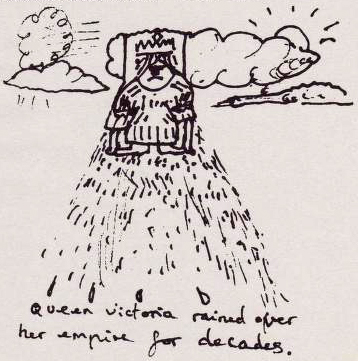 Queen victoria rained over
her empire for decades.